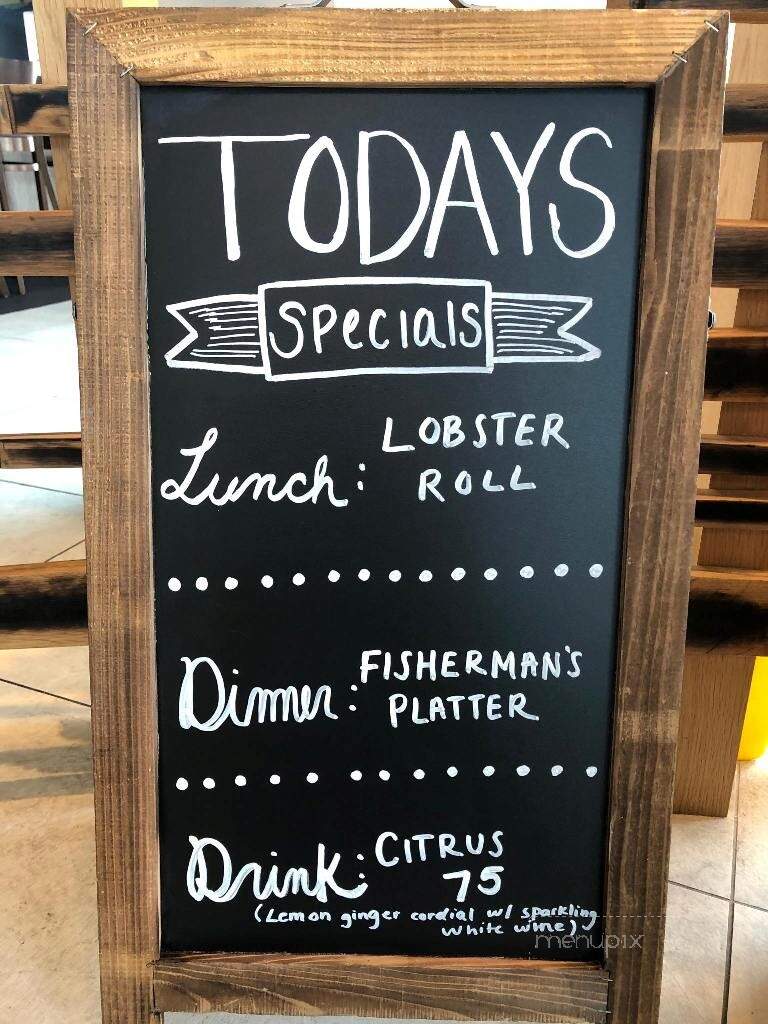 TODAYS
SPecials
Lunch: LOBSTER
ROLL
Dinner: FISHERMAN'S
PLATTER
Drink: CITRUS
75
(Lemon ginger cordial w/ sparkling
white wine)
menupix